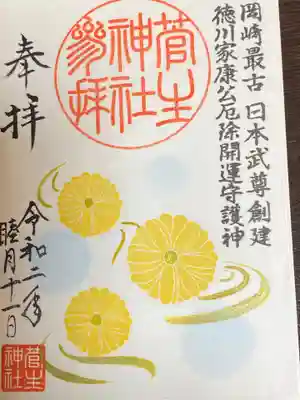 岡崎最古 日本武尊創建
徳川家康公厄除開運守護神
菅生
神社
参拝
奉拝
令和二年
睦月十一日
菅生
神社